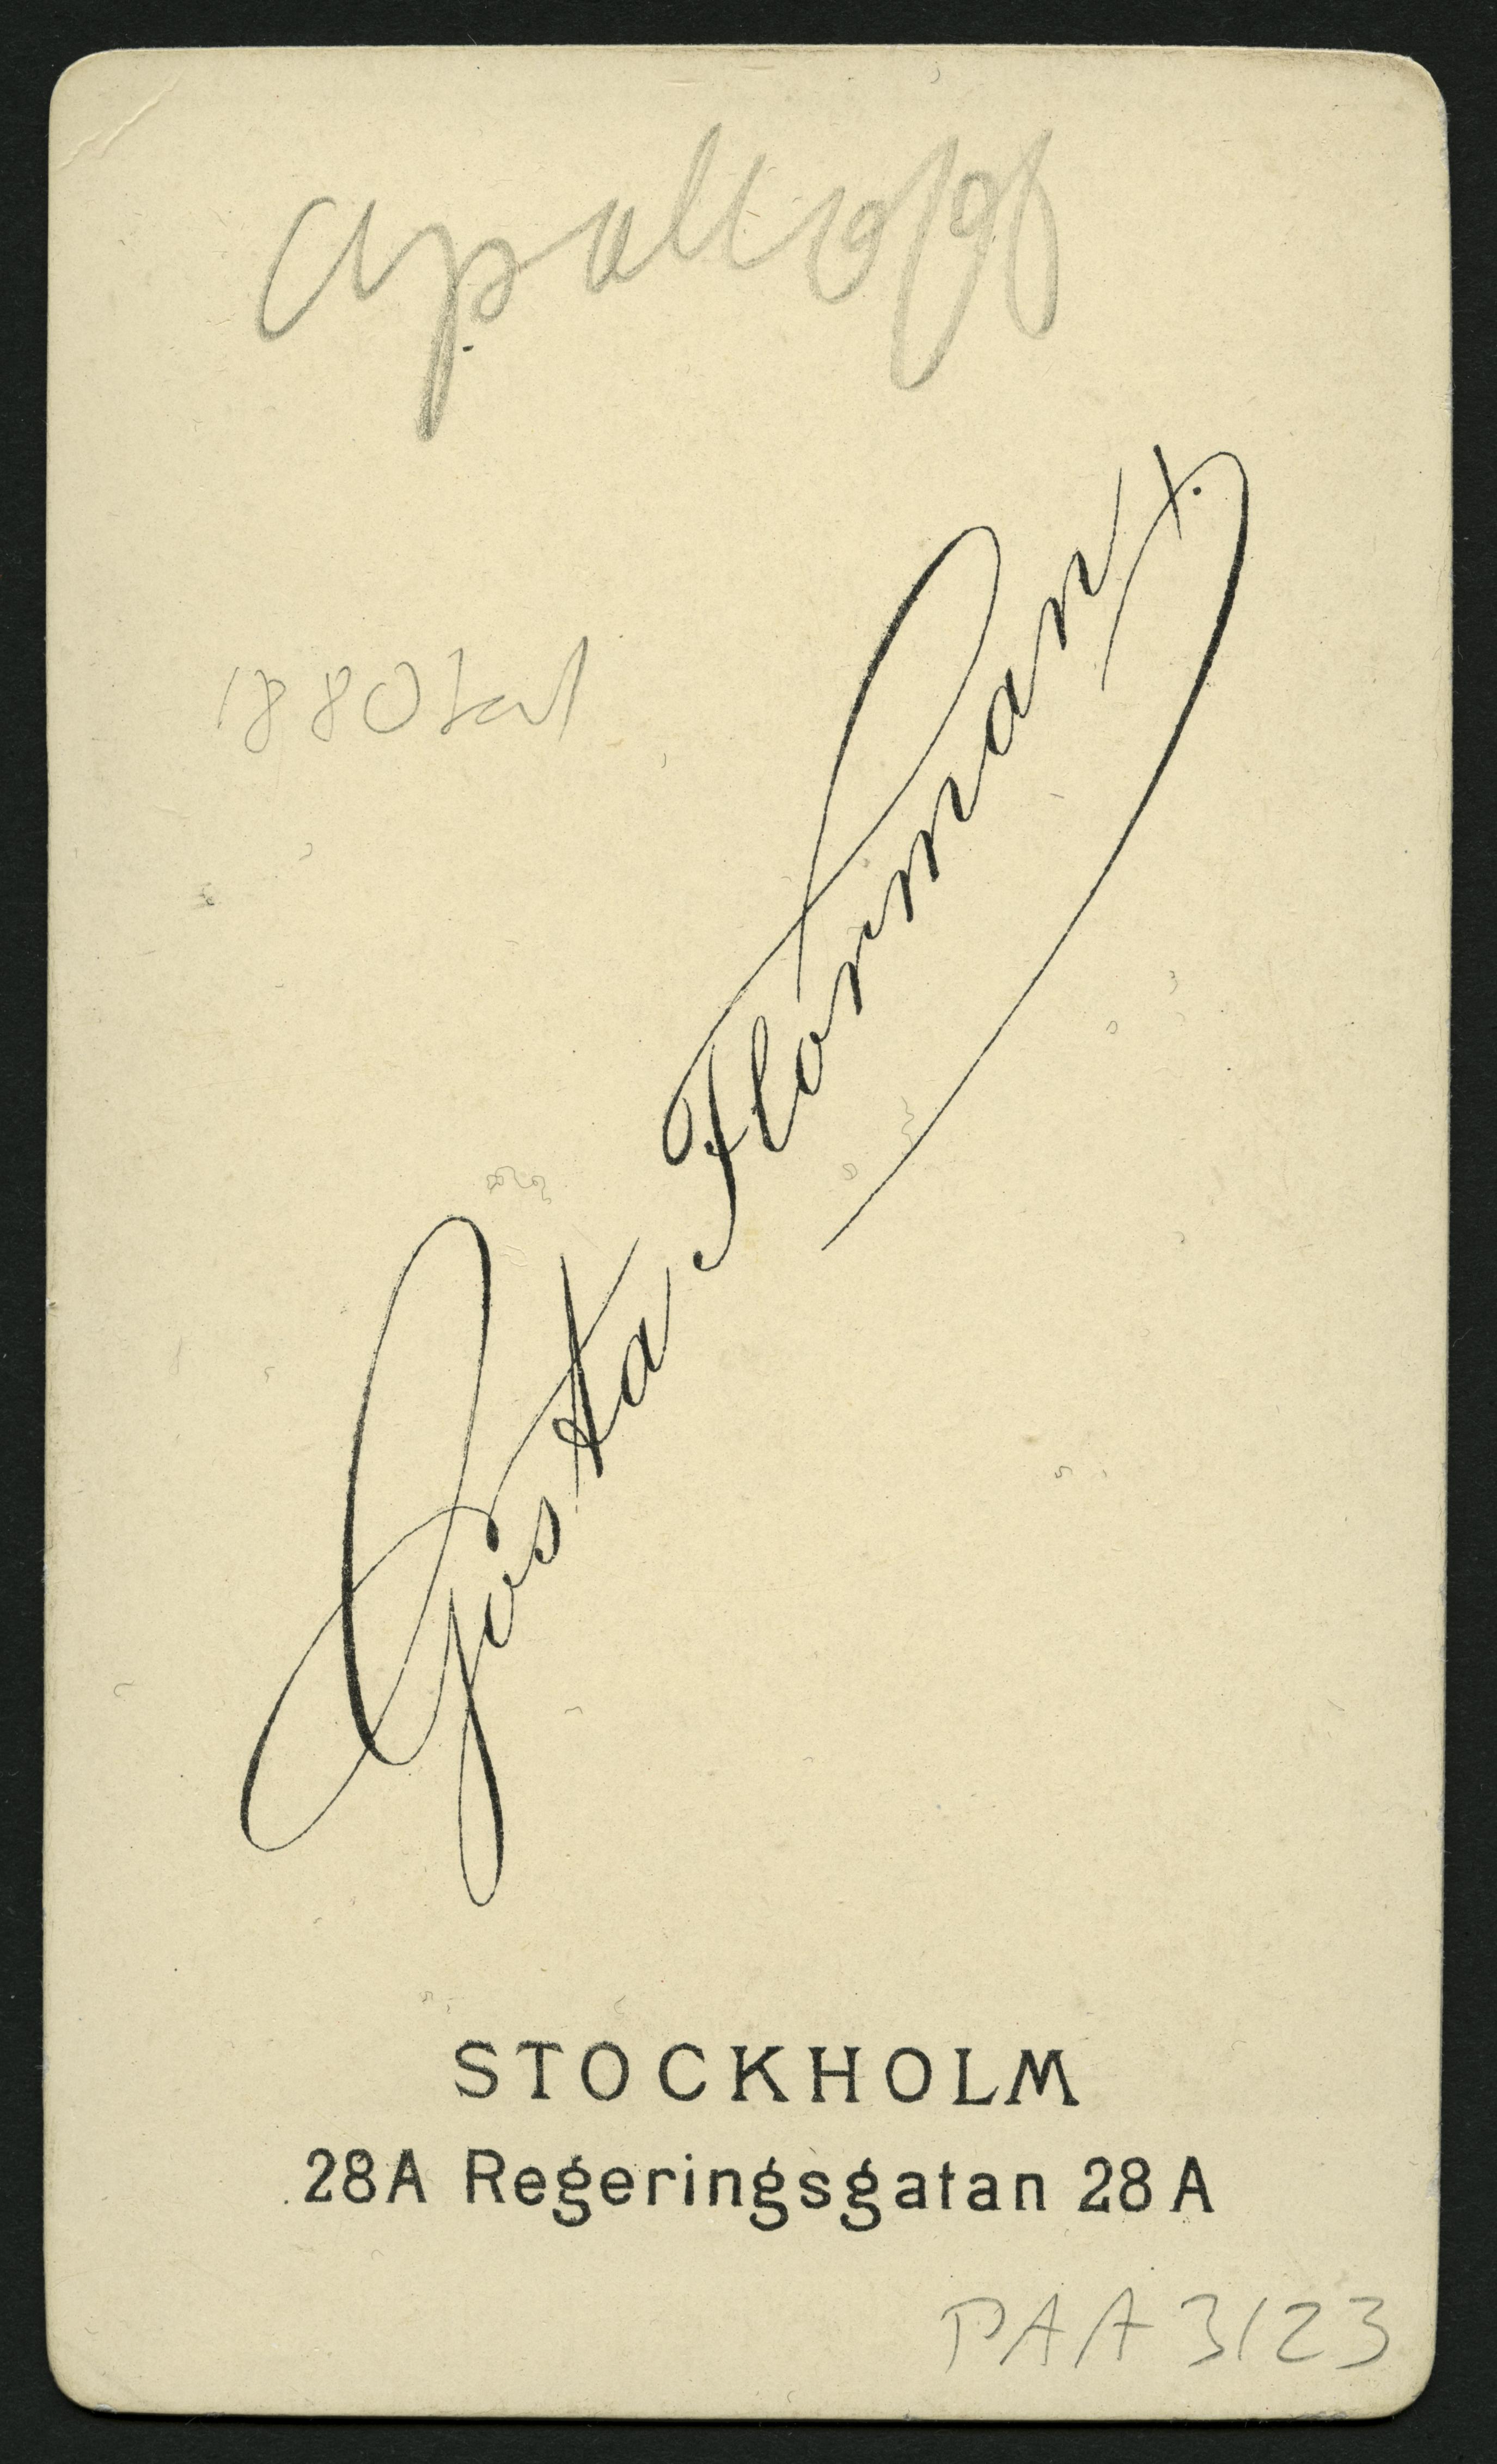 Apolloff
1880tal
Gösta Florman
STOCKHOLM
28A Regeringsgatan 28A
PAA 3123